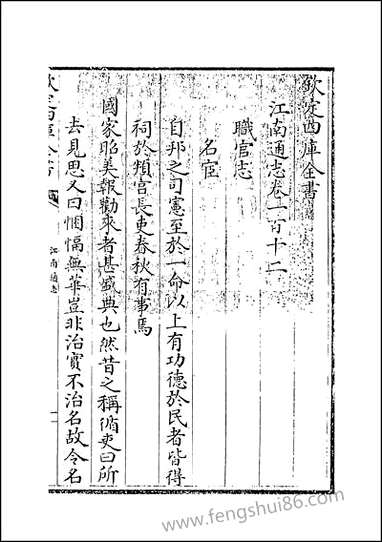 欽定四庫全書
江南通志卷一百十二
職官志
名宦
自邦之司憲至於一命以上有功德於民者皆得
祠於頖宫長吏春秋有事焉
國家昭美報勸來者甚盛典也然昔之稱循吏曰所
去見思又曰悃愊無華豈非治實不治名故令名
欽定四庫全書
江南通志
www.fengshui86.com